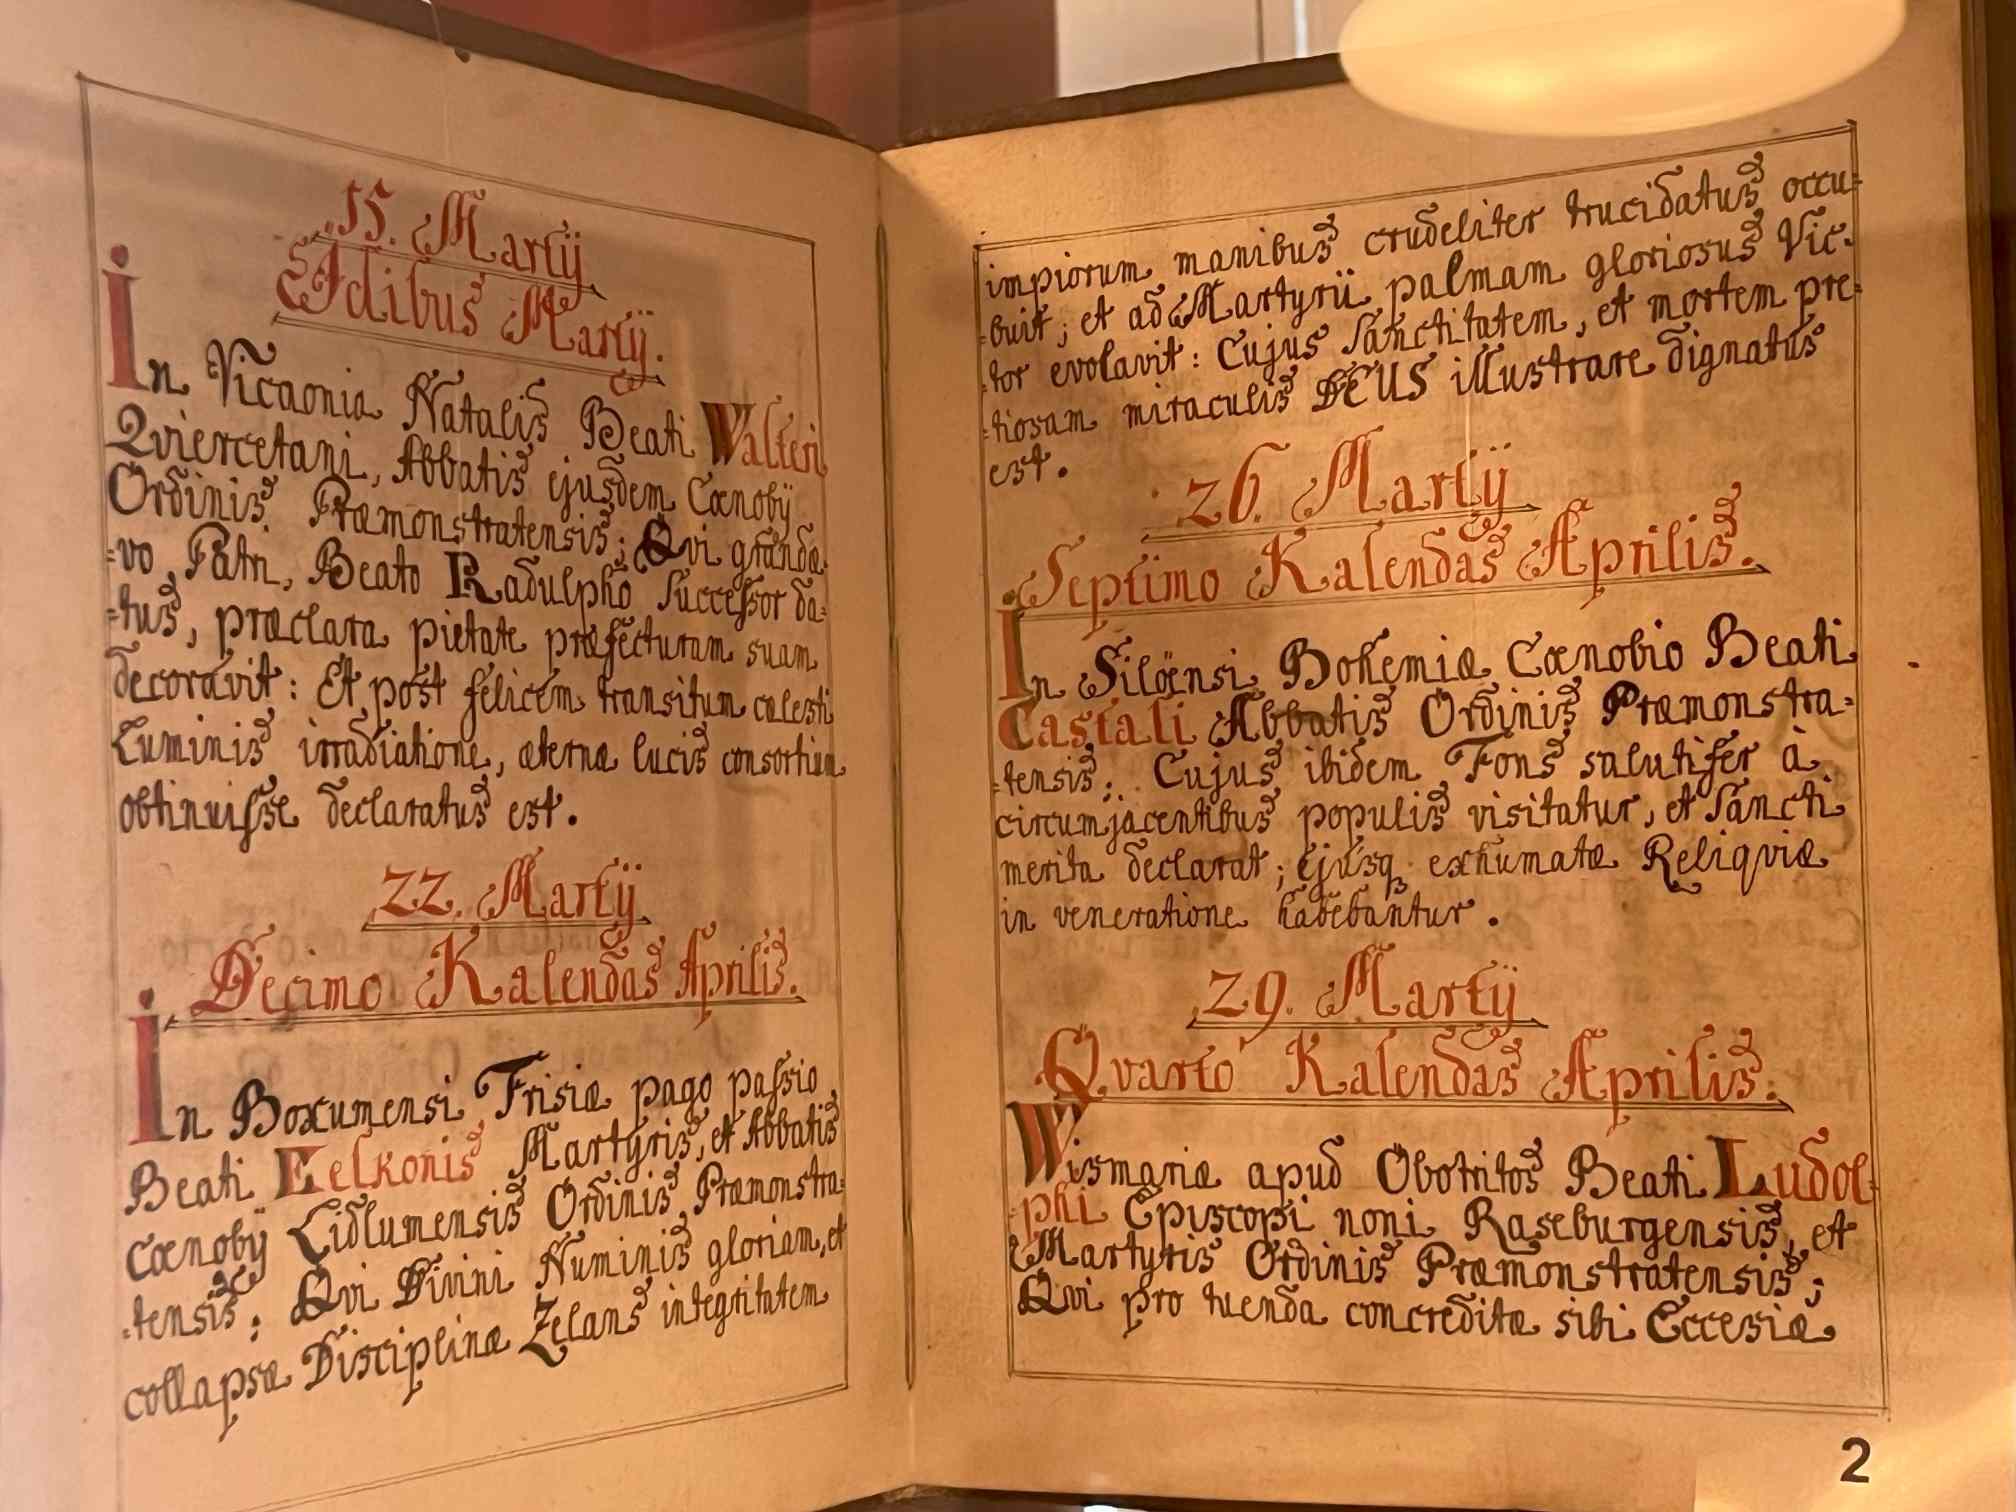 15. Martÿ
Idibus Martÿ.
In Vicaonia Natalis Beati Walteri
Qviercetani, Abbatis ejusdem Cœnobÿ
Ordinis Præmonstratensis; Qvi grandæ
=vo Patri, Beato Radulpho Successor da=
=tus, præclara pietate præfecturam suam
decoravit: Et post felicem transitum cælesti
Luminis irradiatione, æternæ lucis consortium
obtinuisse declaratus est.
22. Martÿ
Decimo Kalendas Aprilis.
In Boxumensi Frisiæ pago passio
Beati Eelkonis Martyris, et Abbatis
Cœnobÿ Lidlumensis Ordinis Præmonstra=
=tensis: Qvi Divini Numinis gloriam, et
collapsæ Disciplinæ Zelans integritatem
impiorum manibus crudeliter trucidatus occu=
=buit; et ad Martyrii palmam gloriosus Vic=
=tor evolavit: Cujus Sanctitatem, et mortem pre=
=tiosam miraculis DEUS illustrare dignatus
est.
26. Martÿ
Septimo Kalendas Aprilis.
In Siloënsi Bohemiæ Cœnobio Beati
Castali Abbatis Ordinis Præmonstra=
=tensis: Cujus ibidem Fons salutifer à
circumjacentibus populis visitatur, et Sancti
merita declarat; ejusq. exhumatæ Reliqviæ
in veneratione habebantur.
29. Martÿ
Qvarto Kalendas Aprilis.
Wismariæ apud Obotritos Beati Ludol=
=phi Episcopi noni Raseburgensis, et
Martyris Ordinis Præmonstratensis;
Qvi pro tuenda concreditæ sibi Eccesiæ
2